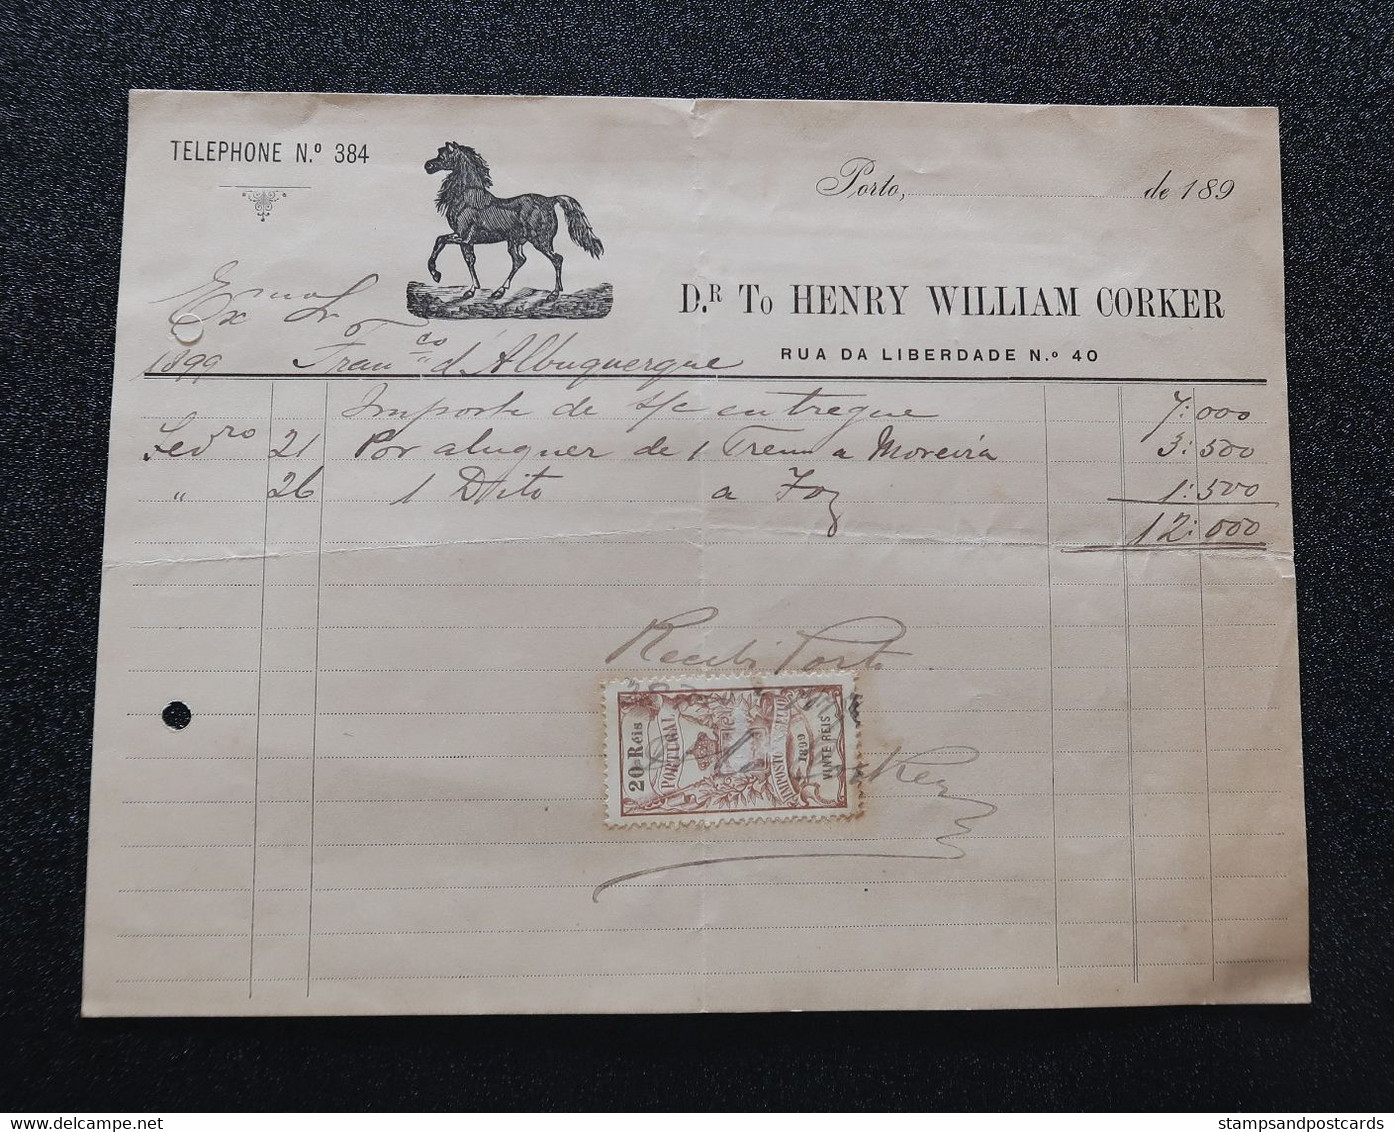 TELEPHONE N.º 384
Porto, de 189
Exmo Sr
D.R To HENRY WILLIAM CORKER
1899 Franco d'Albuquerque
RUA DA LIBERDADE N.º 40
Importe de s/c entregue 7:000
Fevro 21 Por aluguer de 1 Trem a Moreira 3:500
" 26 1 Dito a Foz 1:500
12:000
Recebi Porto
20 Réis
PORTUGAL
IMPOSTO DO SELLO
1899
VINTE REIS
stampsandpostcards.com